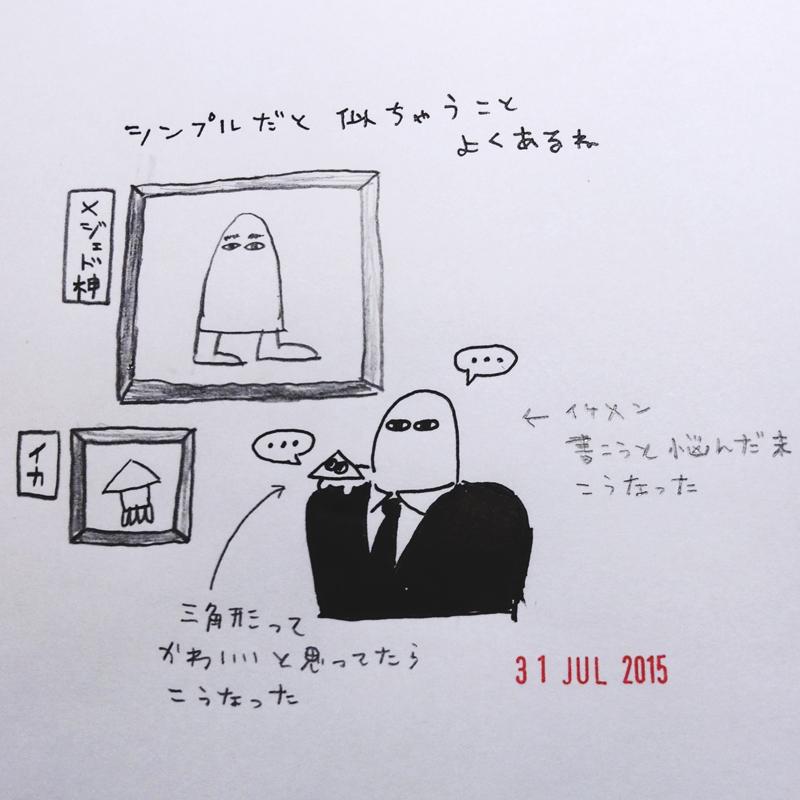 シンプルだと 似ちゃうこと
よくあるね
メジェド神
イカ
…
…
← イケメン
書こうと悩んだ末
こうなった
三角形って
かわいいと思ってたら
こうなった
31 JUL 2015